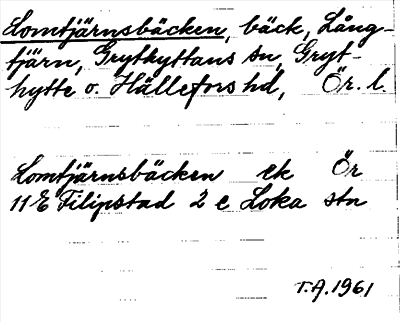 Lomtjärnsbäcken, bäck, Lång-
tjärn, Grythyttans sn, Gryt-
hytte o. Hällefors hd, Ör. l.
Lomtjärnsbäcken ek Ör
11E Filipstad 2 e Loka stn
T.A. 1961